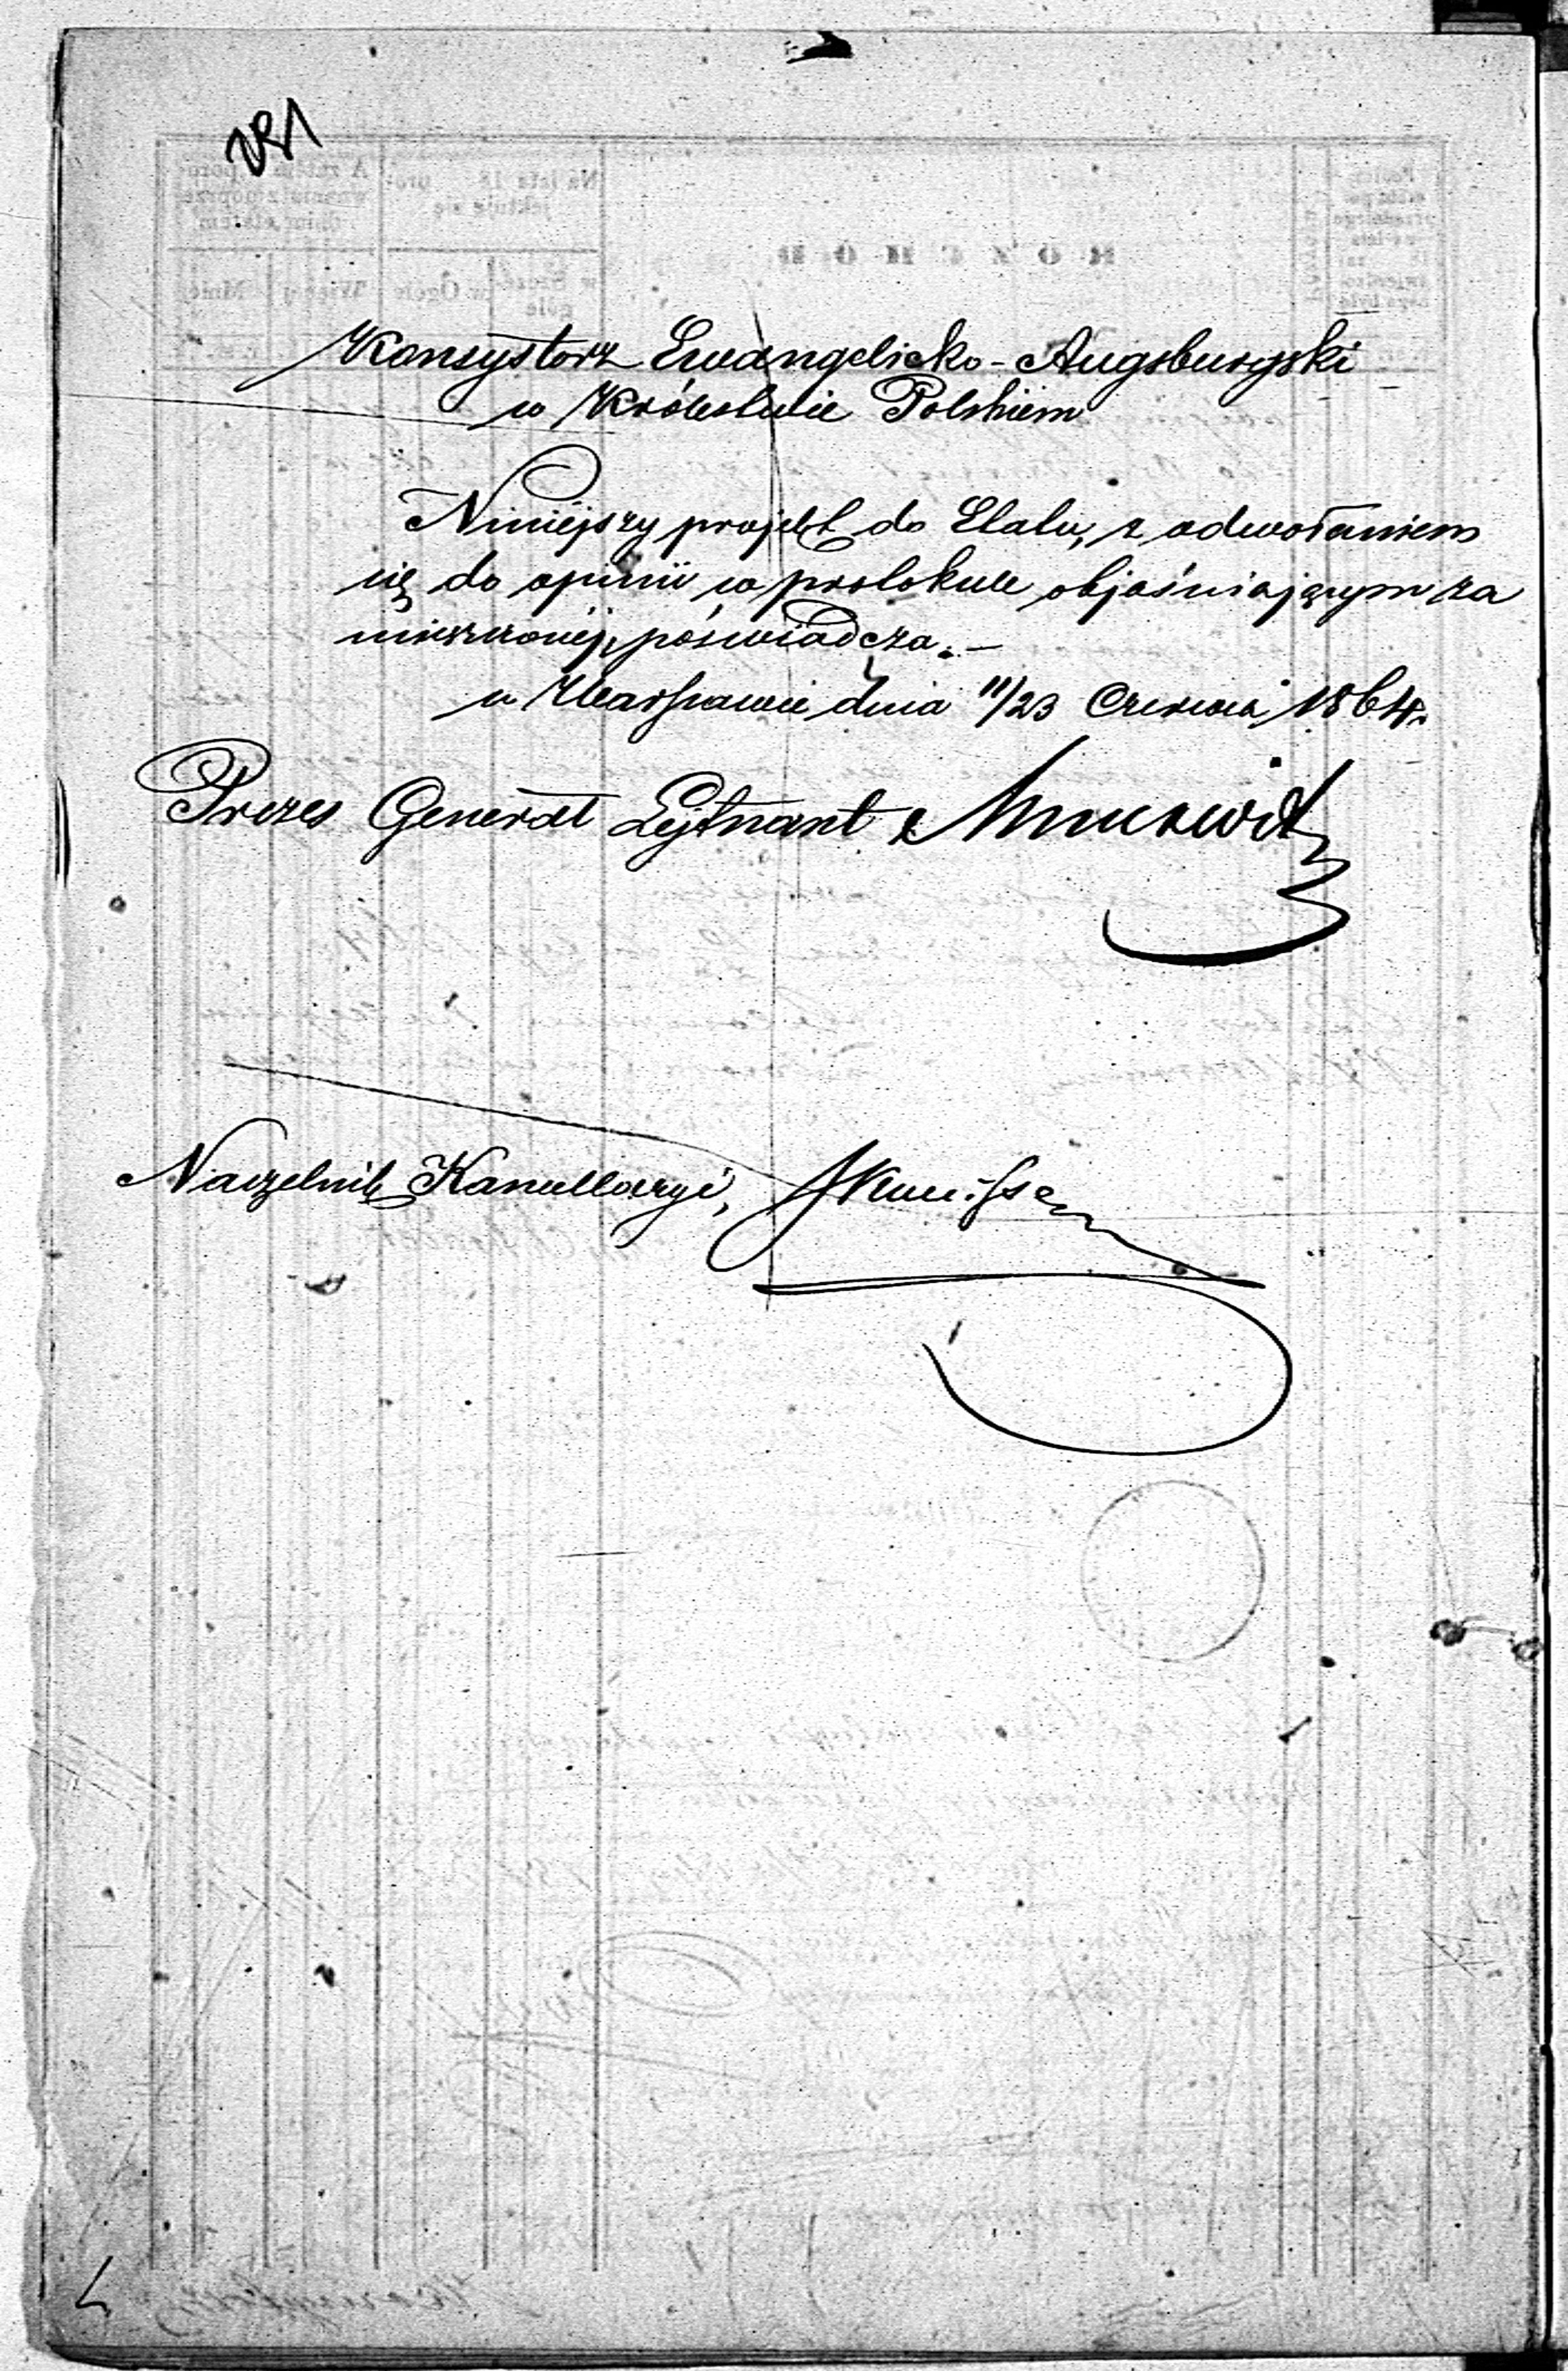 281
Konsystorz Ewangelicko-Augsburgski
w Królestwie Polskiem
Niniejszy projekt do Etatu, z odwołaniem
się do opinii w protokule objaśniającym za
mieszczonéj, poświadcza. —
w Warszawie dnia 11/23 Czerwca 1864 r.
Prezes Generał Lejtnant
Naczelnik Kancellaryi,